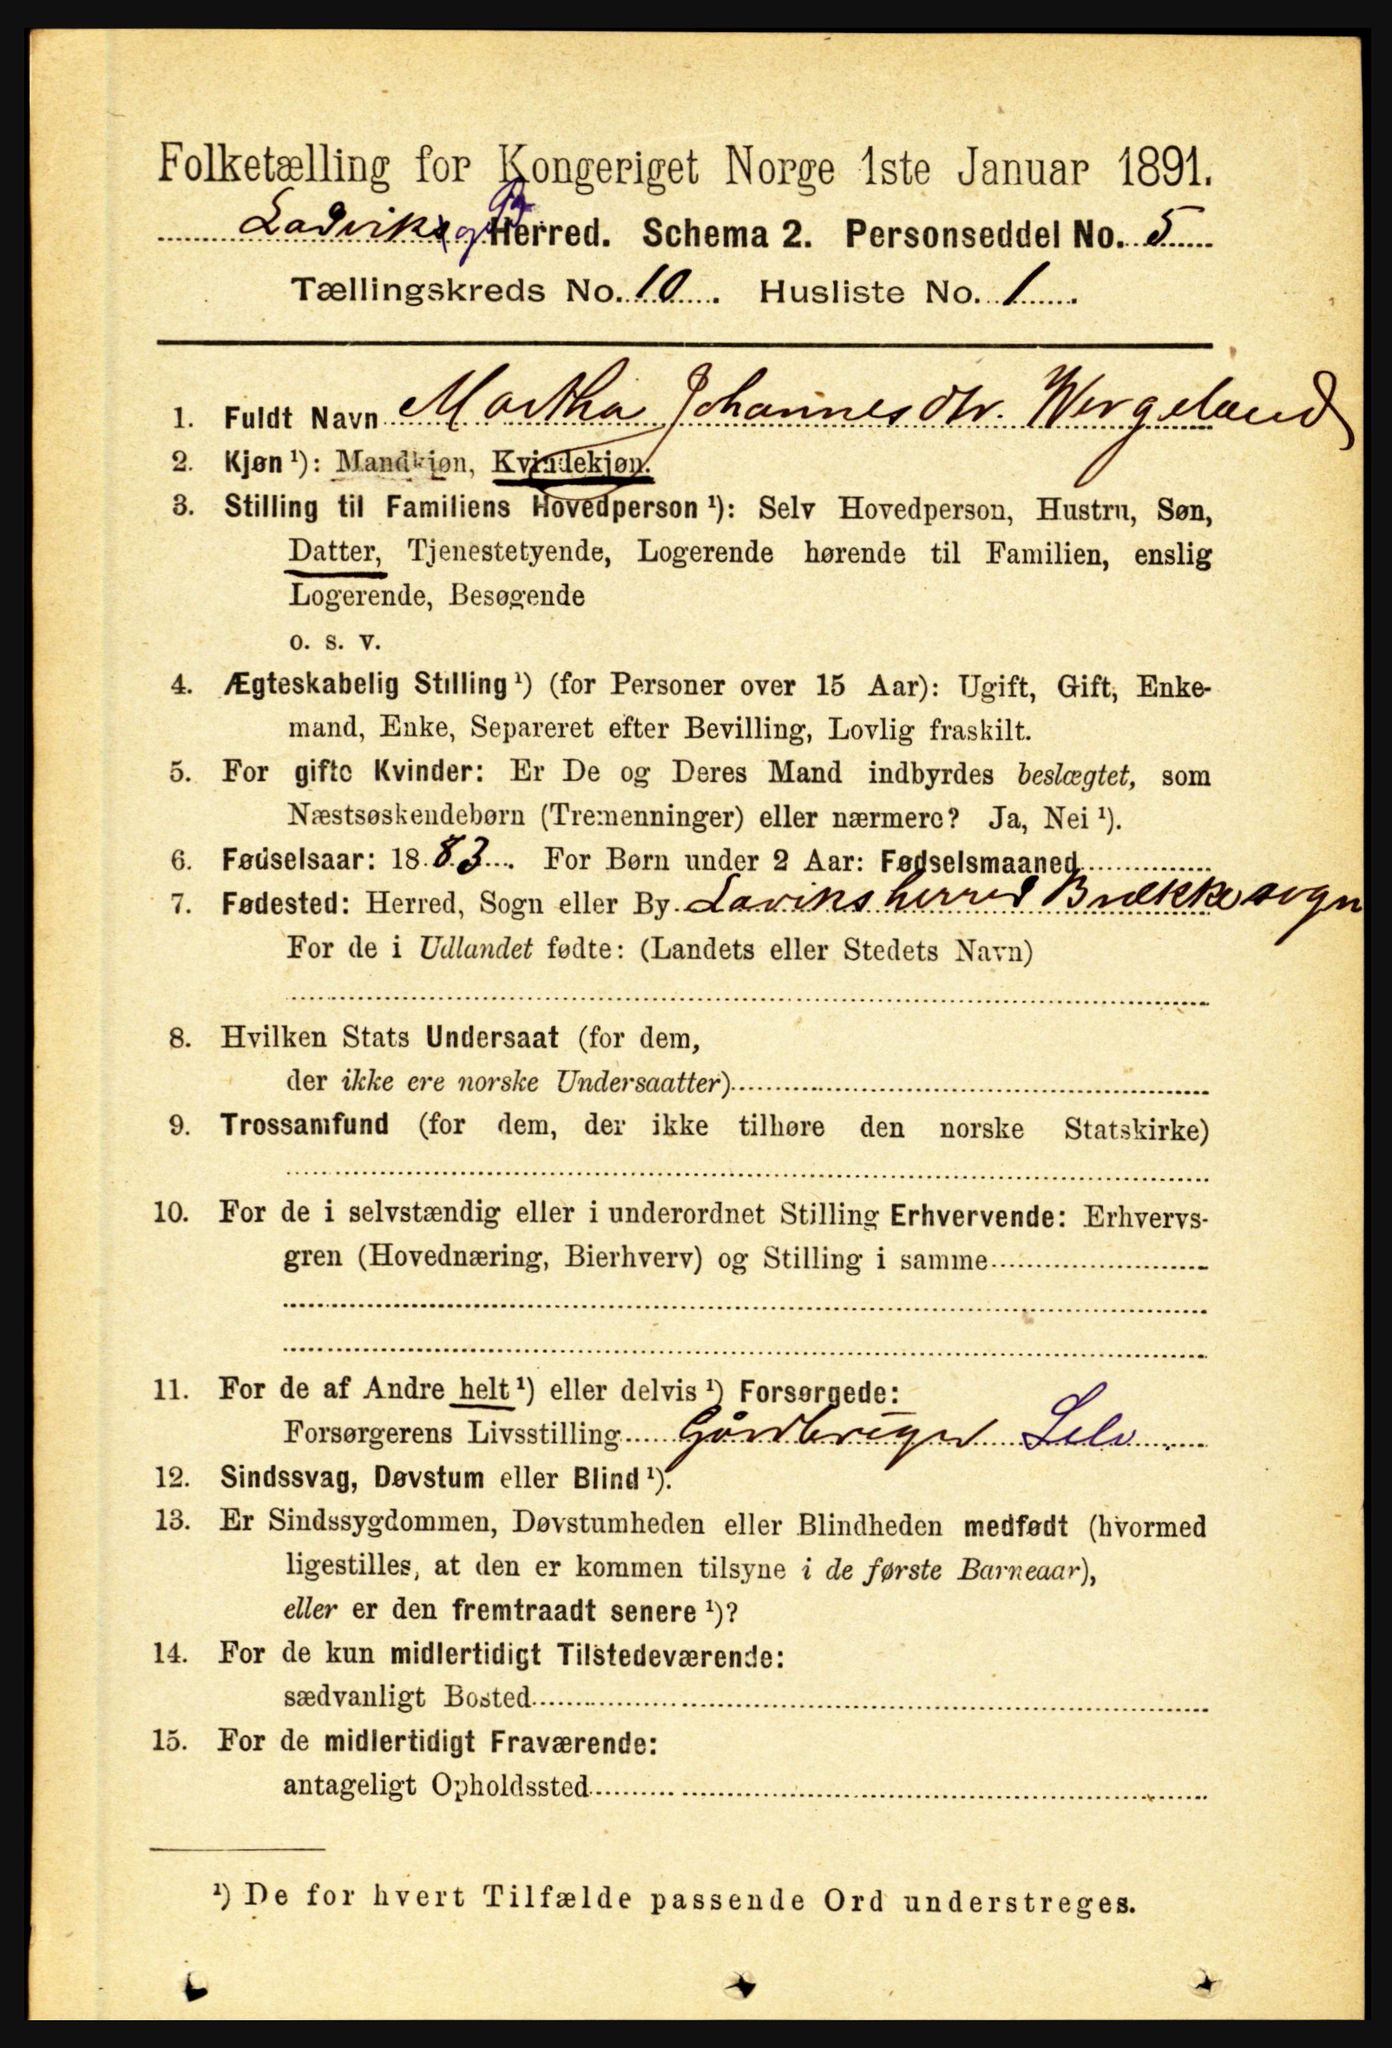 Folketælling for Kongeriget Norge 1ste Januar 1891.
Ladviks og Herred. Schema 2. Personseddel No. 5
Tællingskreds No. 10. Husliste No. 1
1. Fuldt Navn Martha Johannesdtr. Wergeland
2. Kjøn ¹): Mandkjøn, Kvindekjøn.
3. Stilling til Familiens Hovedperson ¹): Selv Hovedperson, Hustru, Søn,
Datter, Tjenestetyende, Logerende hørende til Familien, enslig
Logerende, Besøgende
o. s. v.
4. Ægteskabelig Stilling ¹) (for Personer over 15 Aar): Ugift, Gift, Enke-
mand, Enke, Separeret efter Bevilling, Lovlig fraskilt.
5. For gifte Kvinder: Er De og Deres Mand indbyrdes beslægtet, som
Næstsøskendebørn (Tremenninger) eller nærmere? Ja, Nei ¹).
6. Fødselsaar: 1883. For Børn under 2 Aar: Fødselsmaaned
7. Fødested: Herred, Sogn eller By Laviks herred Brække sogn
For de i Udlandet fødte: (Landets eller Stedets Navn)
8. Hvilken Stats Undersaat (for dem,
der ikke ere norske Undersaatter)
9. Trossamfund (for dem, der ikke tilhøre den norske Statskirke)
10. For de i selvstændig eller i underordnet Stilling Erhvervende: Erhvervs-
gren (Hovednæring, Bierhverv) og Stilling i samme
11. For de af Andre helt ¹) eller delvis ¹) Forsørgede:
Forsørgerens Livsstilling Gårdbruger Selv
12. Sindssvag, Døvstum eller Blind ¹).
13. Er Sindssygdommen, Døvstumheden eller Blindheden medfødt (hvormed
ligestilles, at den er kommen tilsyne i de første Barneaar),
eller er den fremtraadt senere ¹)?
14. For de kun midlertidigt Tilstedeværende:
sædvanligt Bosted
15. For de midlertidigt Fraværende:
antageligt Opholdssted
¹) De for hvert Tilfælde passende Ord understreges.